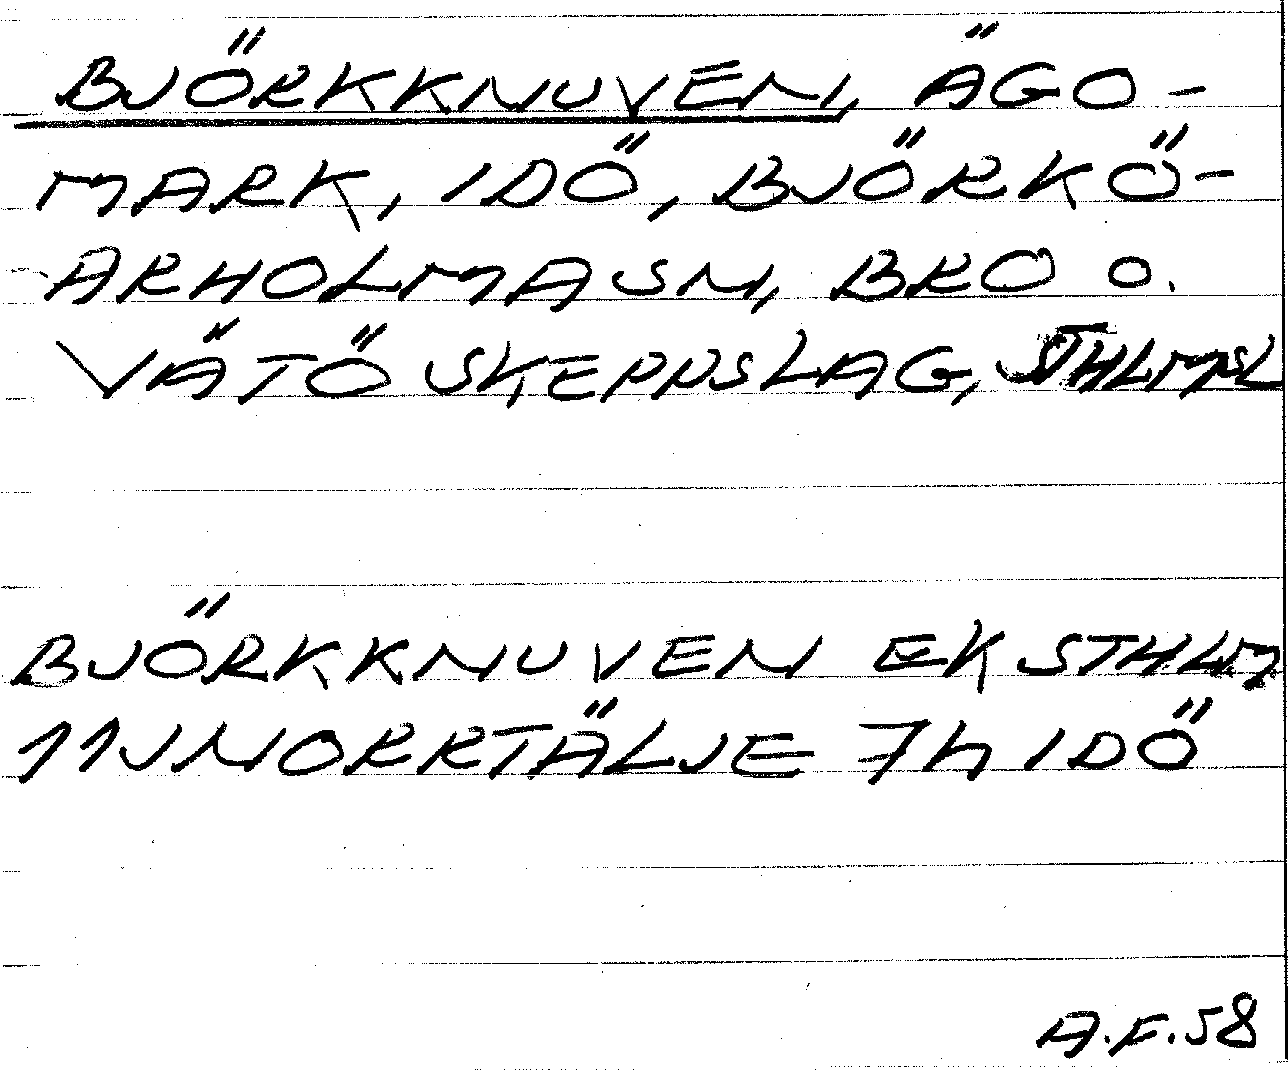 BJÖRKKNUVEN, ÄGO-
MARK, IDÖ, BJÖRKÖ-
ARHOLMASN, BRO O.
VÄTÖ SKEPPSLAG, STHLMSL
BJÖRKKNUVEN EK STHLM
11J NORRTÄLJE 7h IDÖ
A.F.58